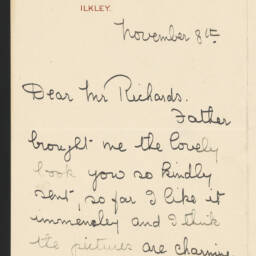 ILKLEY.
November 8th
Dear Mr Richards.
Father
brought me the lovely
book you so kindly
sent, so far I like it
immensley and I think
the pictures are charming